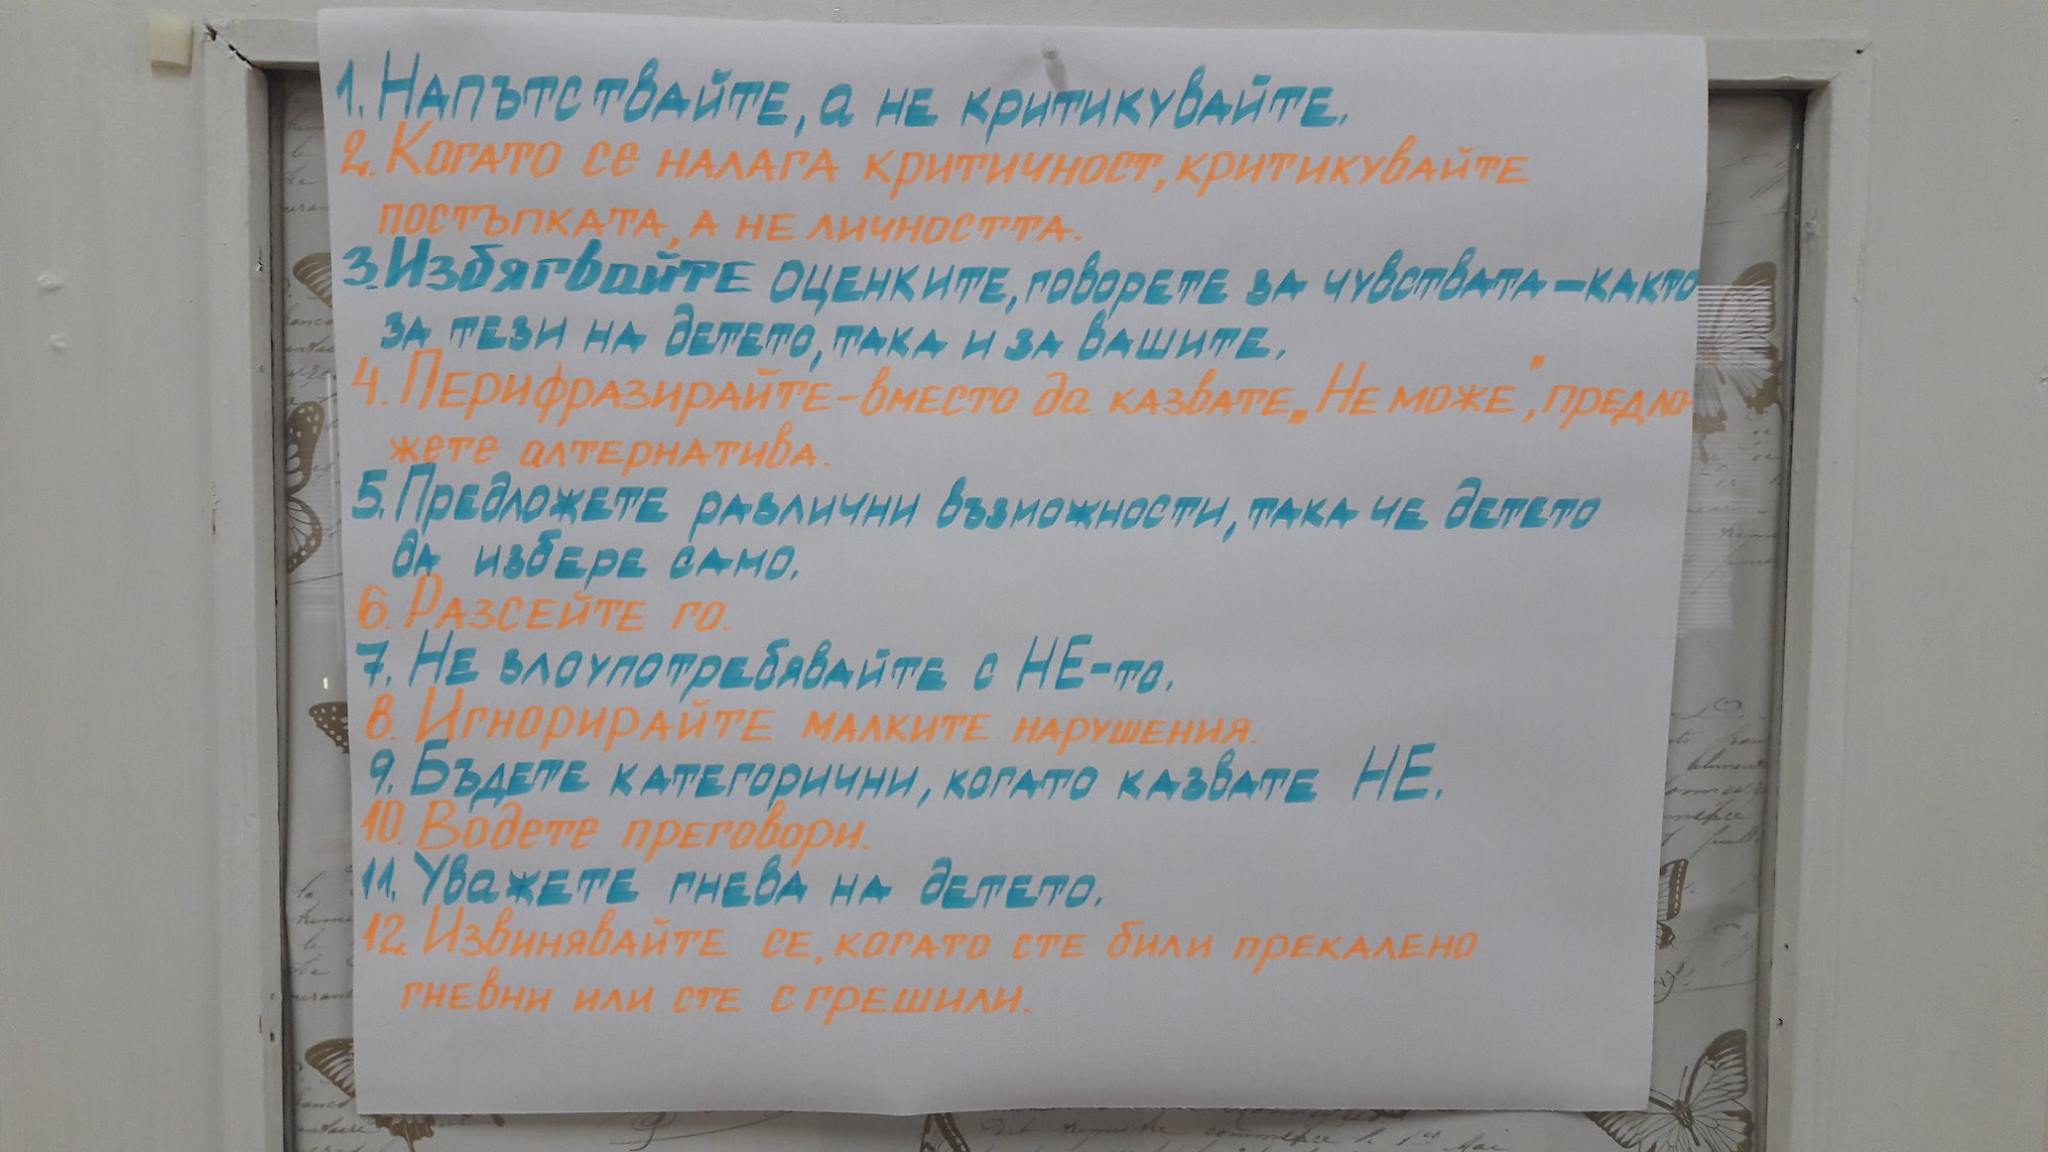 1. Напътствайте, а не критикувайте.
2. Когато се налага критичност, критикувайте
постъпката, а не личността.
3. Избягвайте оценките, говорете за чувствата – както
за тези на детето, така и за вашите.
4. Перифразирайте – вместо да казвате „Не може", предло-
жете алтернатива.
5. Предложете различни възможности, така че детето
да избере само.
6. Разсейте го.
7. Не злоупотребявайте с НЕ-то.
8. Игнорирайте малките нарушения.
9. Бъдете категорични, когато казвате НЕ.
10. Водете преговори.
11. Уважете гнева на детето.
12. Извинявайте се, когато сте били прекалено
гневни или сте сгрешили.